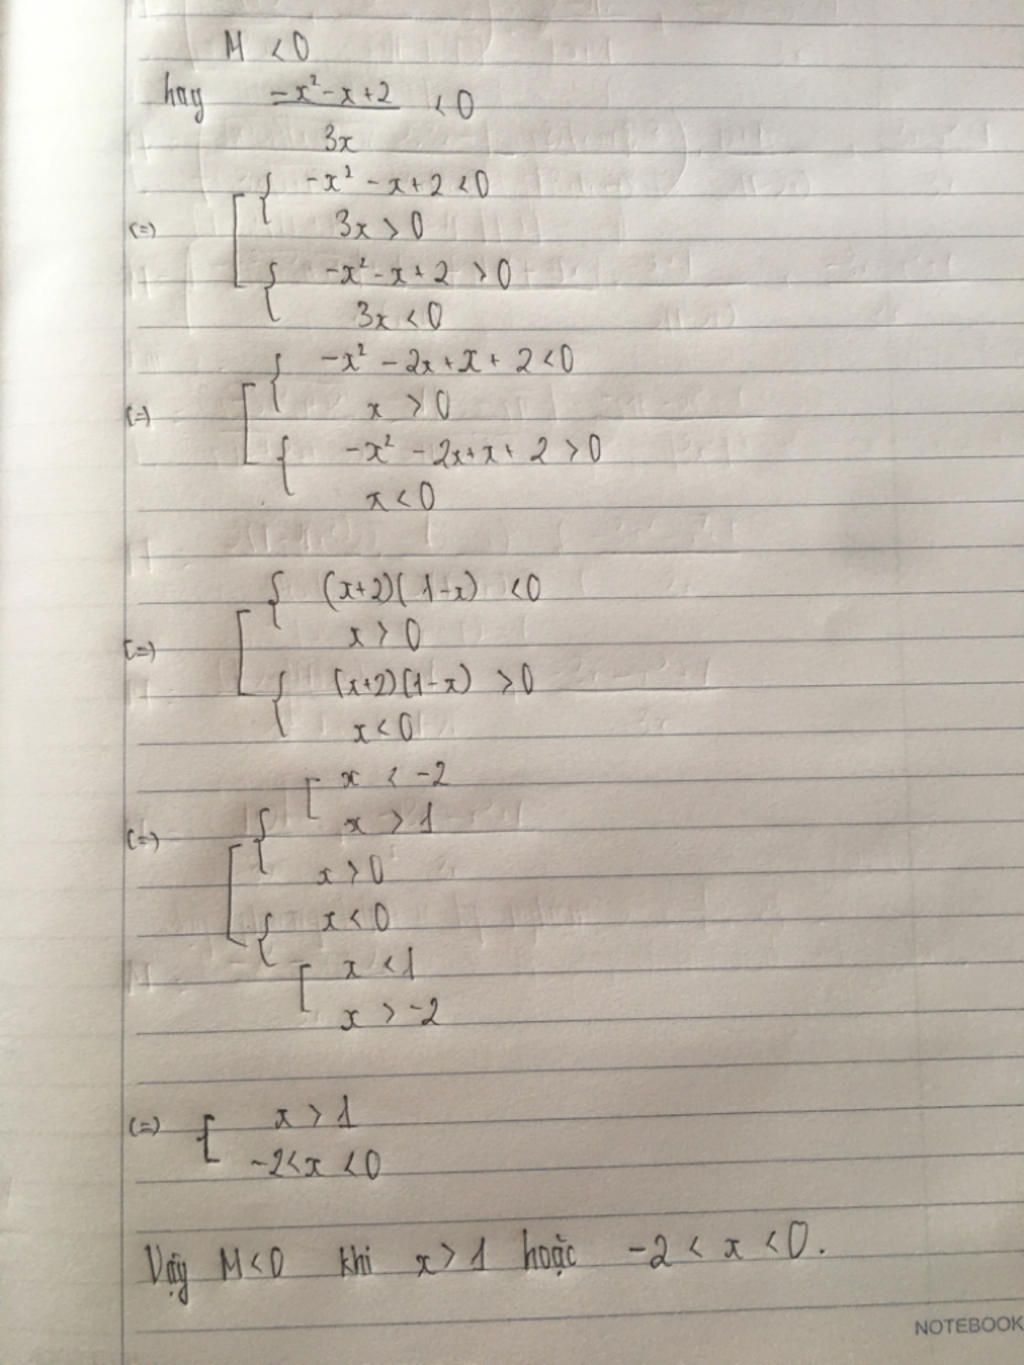 M < 0
hay −x² − x + 2 < 0
3x
{ −x² − x + 2 < 0
(=) [ 3x > 0
{ −x² − x + 2 > 0
3x < 0
{ −x² − 2x + x + 2 < 0
(=) [ x > 0
{ −x² − 2x + x + 2 > 0
x < 0
{ (x+2)(1−x) < 0
(=) [ x > 0
{ (x+2)(1−x) > 0
x < 0
[ x < −2
(=) { x > 1
[ x > 0
{ x < 0
[ x < 1
x > −2
(=) { x > 1
−2 < x < 0
Vậy M < 0 khi x > 1 hoặc −2 < x < 0.
NOTEBOOK